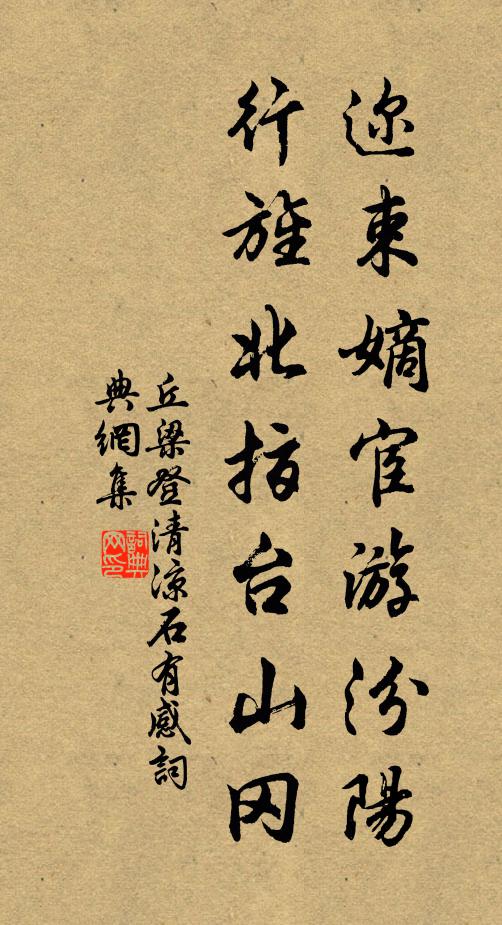 迩来嫡宦游汾陽
行旌北指台山冈
丘梁登清凉石有感詞
典網集
詞典
网印